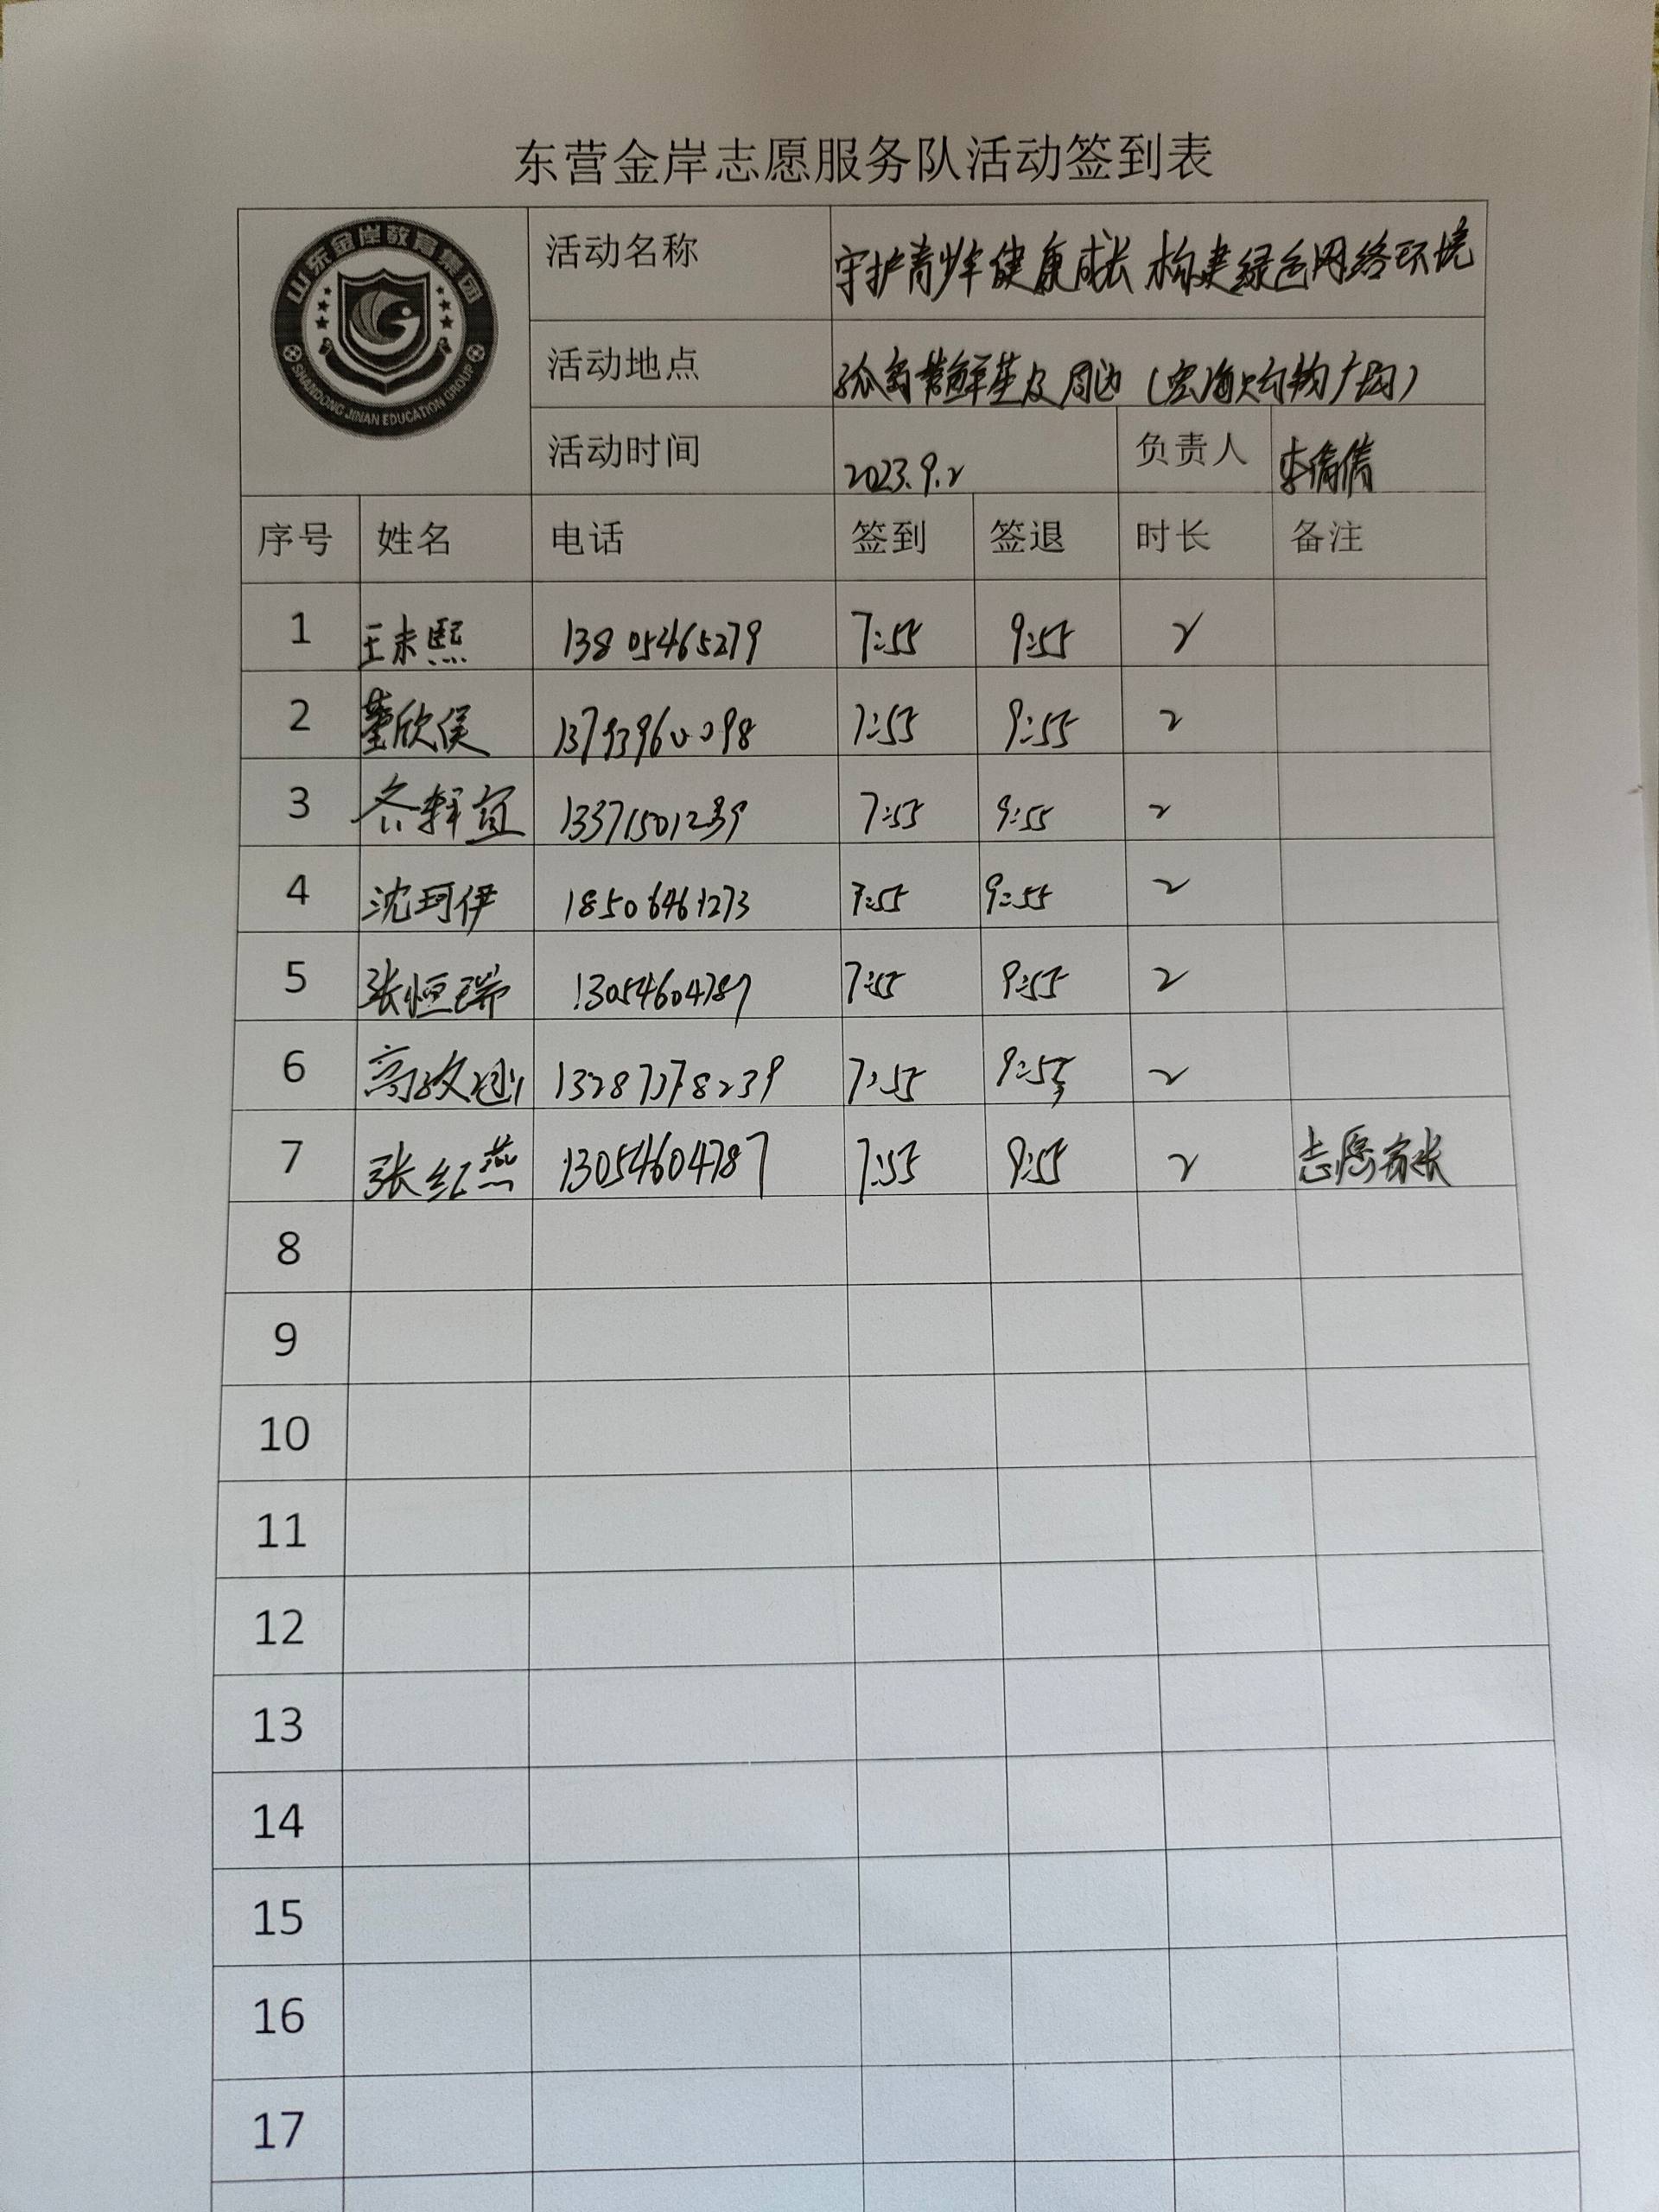 东营金岸志愿服务队活动签到表
山东金岸教育集团
SHANDONG JINAN EDUCATION GROUP
活动名称 守护青少年健康成长 构建绿色网络环境
活动地点 及周边（宏海购物广场）
活动时间 2023.9.2 负责人 李倩倩
序号 姓名 电话 签到 签退 时长 备注
1 王未熙 13805465279 7:55 9:55 2
2 董欣 13793960098 7:55 9:55 2
3 轩宜 13371501239 7:55 9:55 2
4 沈珂伊 18506461273 7:55 9:55 2
5 张恒瑞 13054604787 7:55 9:55 2
6 高 7:55 9:55 2
7 张红燕 13054604787 7:55 9:55 2 志愿家长
8
9
10
11
12
13
14
15
16
17